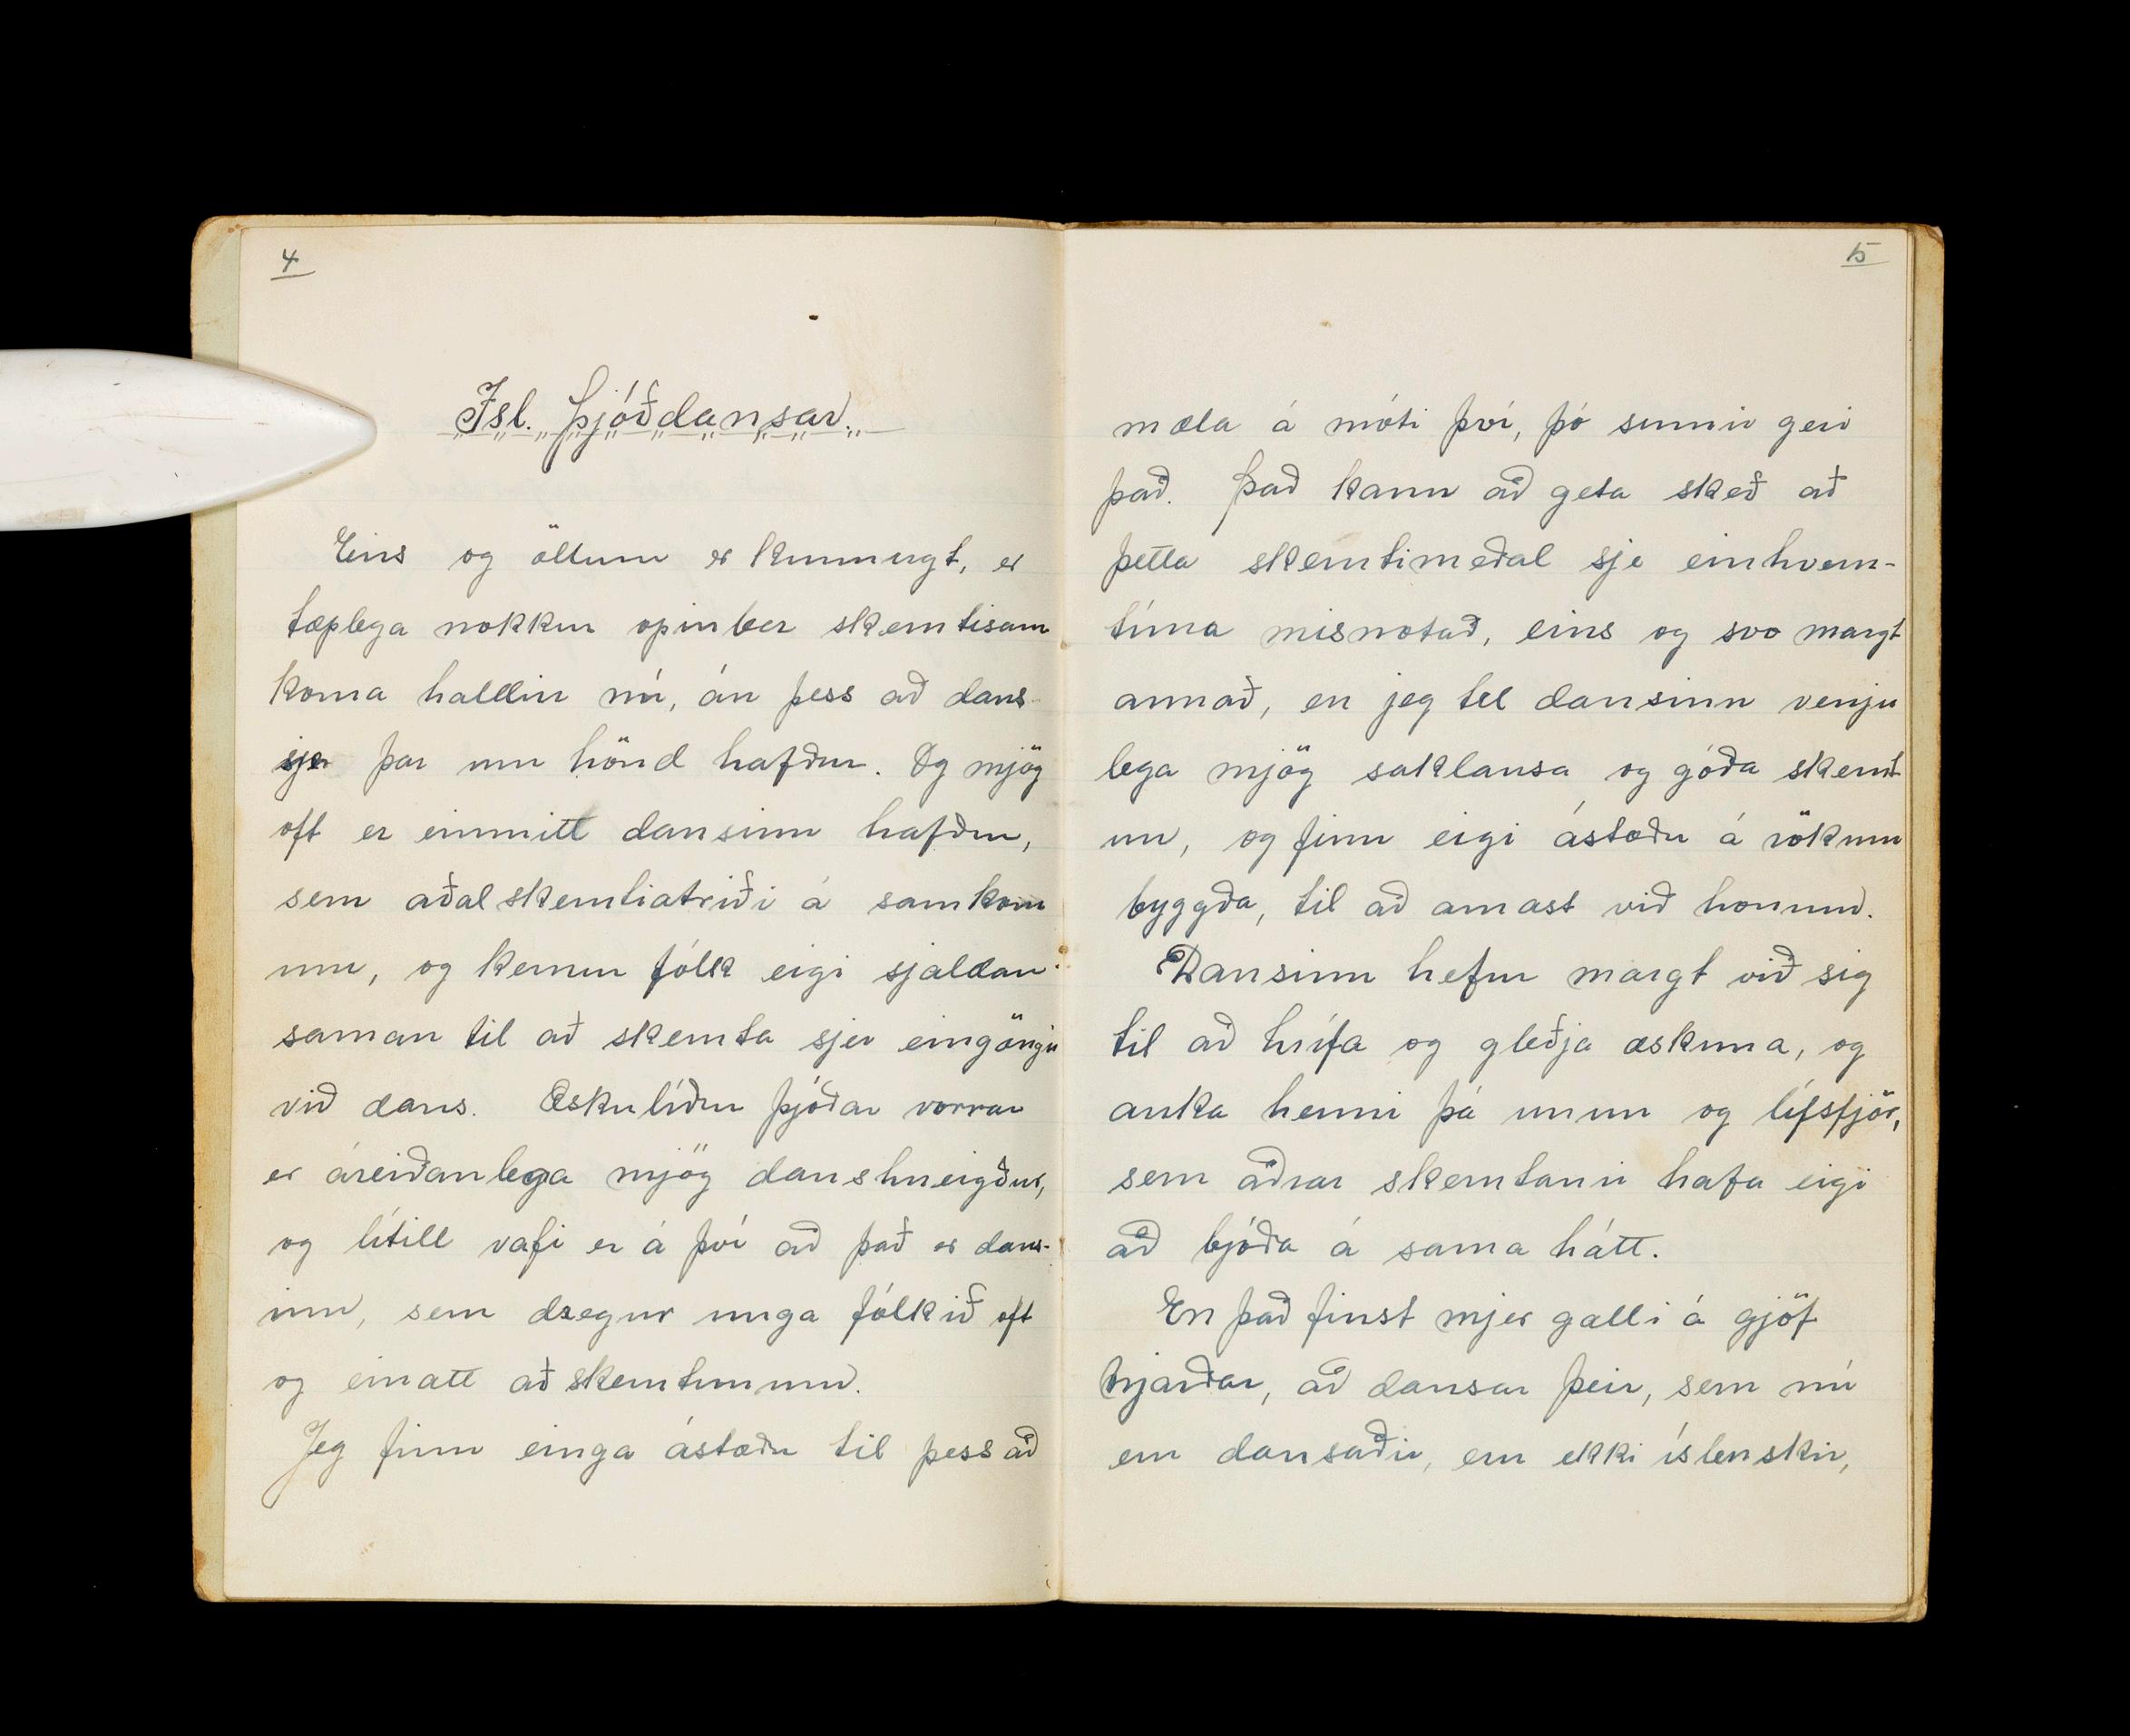 4
Ísl. Þjóðdansar.
Eins og öllum er kunnugt, er
tæplega nokkur opinber skemtisam
koma haldin nú, án þess að dans
sje þar um hönd hafður. Og mjög
oft er einmitt dansinn hafður,
sem aðalskemtiatriði á samkom
um, og kemur fólk eigi sjaldan
saman til að skemta sjer eingöngu
við dans. Æskulíður þjóðar vorrar
er áreiðanlega mjög danshneigður,
og lítill vafi er á því að það er dans-
inn, sem dregur unga fólkið oft
og einatt að skemtunum.
Jeg finn einga ástæðu til þess að
5
mæla á móti því, þó sumir geri
það. Það kann að geta skeð að
þetta skemtimeðal sje einhvern-
tíma misnotað, eins og svo margt
annað, en jeg tel dansinn venju
lega mjög saklausa og góða skemt
un, og finn eigi ástæðu á rökum
byggða, til að amast við honum.
Dansinn hefur margt við sig
til að hrífa og gleðja æskuna, og
auka henni þá unun og lífsfjör,
sem aðrar skemtanir hafa eigi
að bjóða á sama hátt.
En það finst mjer galli á gjöf
Njarðar, að dansar þeir, sem nú
eru dansaðir, eru ekki íslenskir,